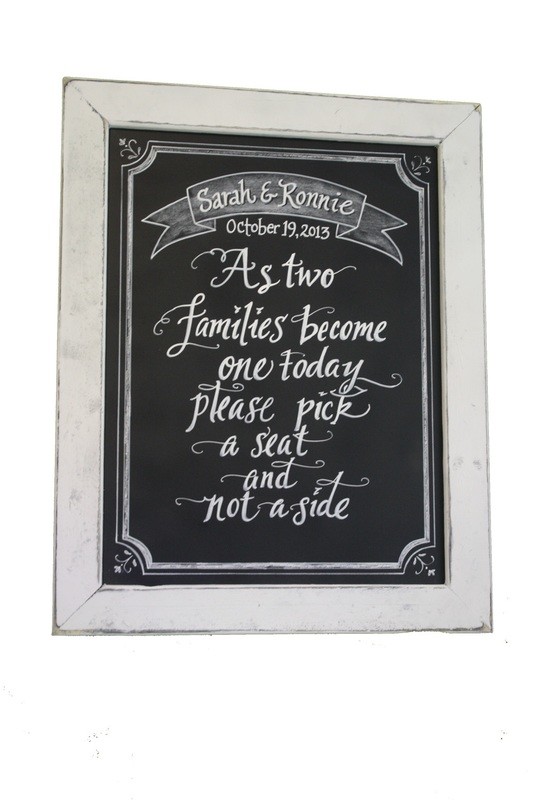 Sarah & Ronnie
October 19, 2013
As two
families become
one today
please pick
a seat
and
not a side